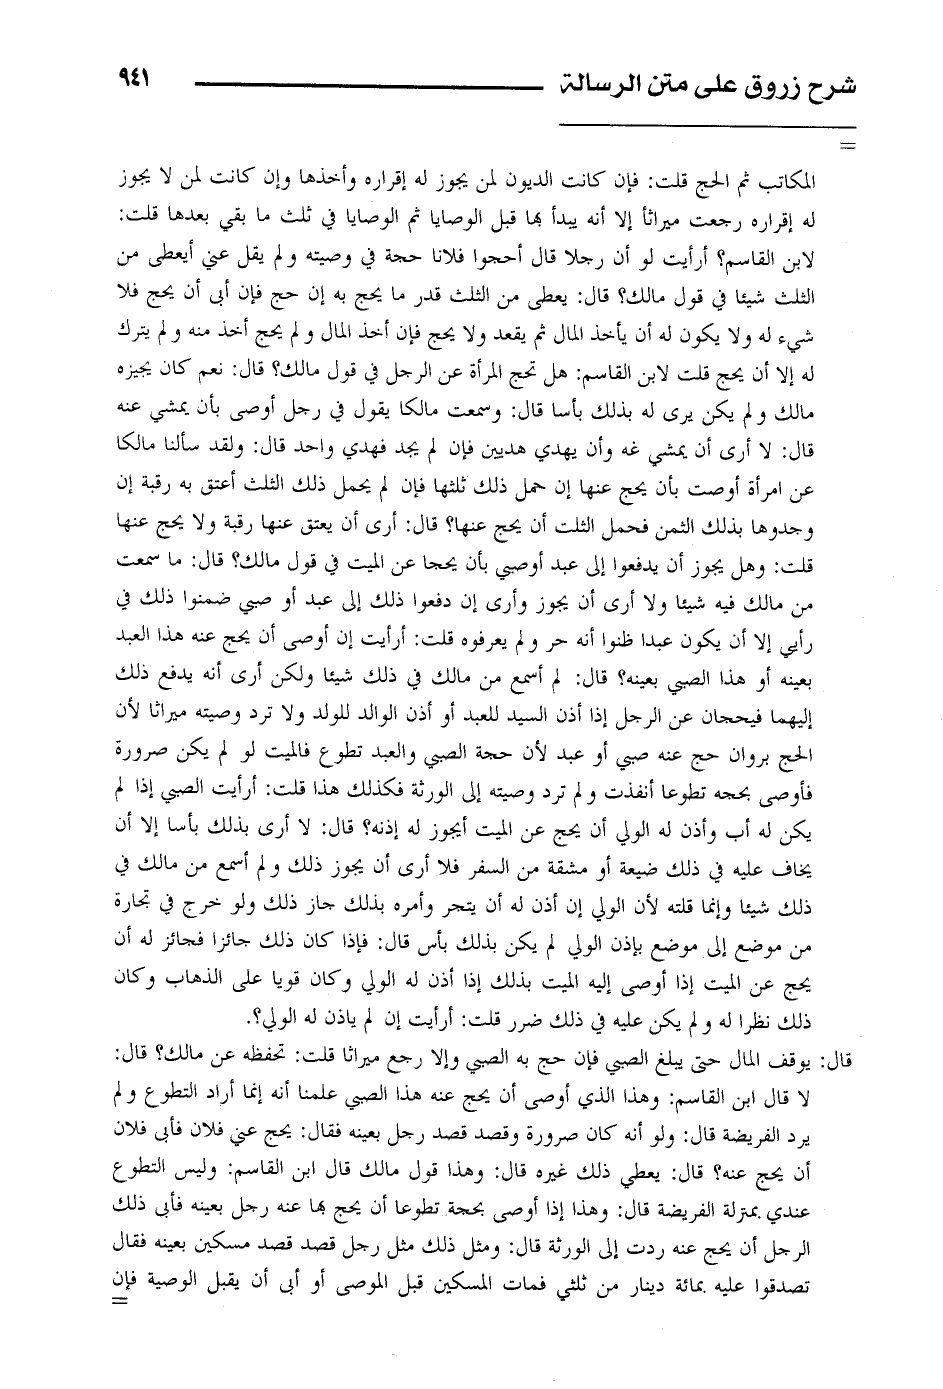 شرح زروق على متن الرسالة ٩٤١
=
المكاتب ثم الحج قلت: فإن كانت الديون لمن يجوز له إقراره وأخذها وإن كانت لمن لا يجوز
له إقراره رجعت ميراثاً إلا أنه يبدأ بها قبل الوصايا ثم الوصايا في ثلث ما بقي بعدها قلت:
لابن القاسم؟ أرأيت لو أن رجلا قال أحجوا فلانا حجة في وصيته ولم يقل عني أيعطى من
الثلث شيئا في قول مالك؟ قال: يعطى من الثلث قدر ما يحج به إن حج فإن أبى أن يحج فلا
شيء له ولا يكون له أن يأخذ المال ثم يقعد ولا يحج فإن أخذ المال ولم يحج أخذ منه ولم يترك
له إلا أن يحج قلت لابن القاسم: هل تحج المرأة عن الرجل في قول مالك؟ قال: نعم كان يجيزه
مالك ولم يكن يرى له بذلك بأسا قال: وسمعت مالكا يقول في رجل أوصى بأن يمشي عنه
قال: لا أرى أن يمشي غه وأن يهدي هديين فإن لم يجد فهدي واحد قال: ولقد سألنا مالكا
عن امرأة أوصت بأن يحج عنها إن حمل ذلك ثلثها فإن لم يحمل ذلك الثلث أعتق به رقبة إن
وجدوها بذلك الثمن فحمل الثلت أن يحج عنها؟ قال: أرى أن يعتق عنها رقبة ولا يحج عنها
قلت: وهل يجوز أن يدفعوا إلى عبد أوصبي بأن يحجا عن الميت في قول مالك؟ قال: ما سمعت
من مالك فيه شيئا ولا أرى أن يجوز وأرى إن دفعوا ذلك إلى عبد أو صبي ضمنوا ذلك في
رأيي إلا أن يكون عبدا ظنوا أنه حر ولم يعرفوه قلت: أرأيت إن أوصى أن يحج عنه هذا العبد
بعينه أو هذا الصبي بعينه؟ قال: لم أسمع من مالك في ذلك شيئا ولكن أرى أنه يدفع ذلك
إليهما فيحجان عن الرجل إذا أذن السيد للعبد أو أذن الوالد للولد ولا ترد وصيته ميراثا لأن
الحج بروان حج عنه صبي أو عبد لأن حجة الصبي والعبد تطوع فالميت لو لم يكن صرورة
فأوصى بحجه تطوعا أنفذت ولم ترد وصيته إلى الورثة فكذلك هذا قلت: أرأيت الصبي إذا لم
يكن له أب وأذن له الولي أن يحج عن الميت أيجوز له إذنه؟ قال: لا أرى بذلك بأسا إلا أن
يخاف عليه في ذلك ضيعة أو مشقة من السفر فلا أرى أن يجوز ذلك ولم أسمع من مالك في
ذلك شيئا وإنما قلته لأن الولي إن أذن له أن يتجر وأمره بذلك جاز ذلك ولو خرج في تجارة
من موضع إلى موضع بإذن الولي لم يكن بذلك بأس قال: فإذا كان ذلك جائزا فجائز له أن
يحج عن الميت إذا أوصى إليه الميت بذلك إذا أذن له الولي وكان قويا على الذهاب وكان
ذلك نظرا له ولم يكن عليه في ذلك ضرر قلت: أرأيت إن لم ياذن له الولي؟.
قال: يوقف المال حتى يبلغ الصبي فإن حج به الصبي وإلا رجع ميراثا قلت: تحفظه عن مالك؟ قال:
لا قال ابن القاسم: وهذا الذي أوصى أن يحج عنه هذا الصبي علمنا أنه إنما أراد التطوع ولم
يرد الفريضة قال: ولو أنه كان صرورة وقصد قصد رجل بعينه فقال: يحج عني فلان فأبى فلان
أن يحج عنه؟ قال: يعطي ذلك غيره قال: وهذا قول مالك قال ابن القاسم: وليس التطوع
عندي بمنزلة الفريضة قال: وهذا إذا أوصى بحجة تطوعا أن يحج بها عنه رجل بعينه فأبى ذلك
الرجل أن يحج عنه ردت إلى الورثة قال: ومثل ذلك مثل رجل قصد قصد مسكين بعينه فقال
تصدقوا عليه بمائة دينار من ثلثي فمات المسكين قبل الموصى أو أبى أن يقبل الوصية فإن
=